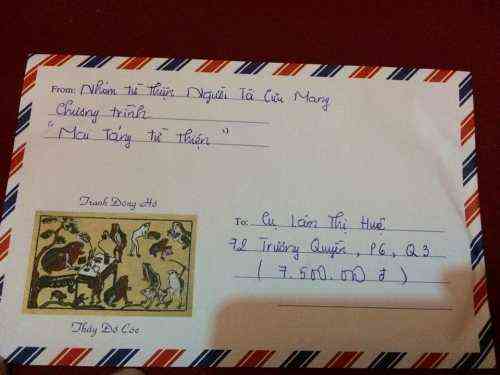 From: Nhóm từ thiện Người Tôi Cưu Mang
Chương trình
"Mai Táng từ thiện"
Tranh Đông Hồ
Thầy Đồ Cóc
To: Cụ Lâm Thị Huê
72 Trương Quyền, P6, Q3
( 7.500.000 đ )